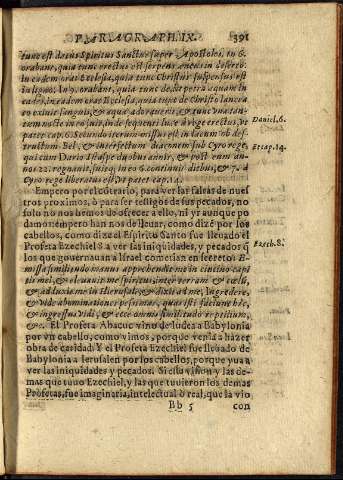 PARAGRAPH. IX. 391
tunc est datus Spiritus Sanctus super Apostolos, in 6.
orabant, quia tunc erectus est serpens æneus in deserto.
In eadem orat Ecclesia, quia tunc Christus suspensus est
in ligno. In 9. orabant, quia tunc de petra aquam
eadē, in eadem orat Ecclesia, quia tunc de Christo lancea
to exiuit sanguis, & aqua
pater cap. 6. Secundo iterum missus est in lacum ob de-
structum Bel, & interfectum diaconem sub Cyro rege,
qui cum Dario Astiage duobus annis, & post eum an-
nos 22. regnauit, in eo 6. continuis diebus, & 7. à
Cyro rege liberatus est, vt patet cap. 14.
Daniel. 6.
Et cap. 14.
Empero por el cótrario, para ver las faltas de nues-
tros proximos, ò para ser testigos de sus pecados, no
solo no nos hemos de ofrecer a ello, ni yr aunque po
damos: empero han nos de lleuar, como dize por los
cabellos, como dize el Espiritu Santo fue lleuado el
Profeta Ezechiel S. a ver las iniquidades, y pecados q̃
los que gouernauan a Israel cometian en secreto: E-
missa similitudo manus apprehendit me in cincino capi
tis mei, & eleuauit me spiritus, inter terram & cœlū,
& adduxit me in Hierusalē, & dixit ad me, Ingredere,
& vide abominationes pessimas, quas isti faciunt hîc,
& ingressus vidi, & ecce omnis similitudo reptilium,
&c. El Profeta Abacuc vino de Iudea a Babylonia
por vn cabello, como vimos, porque venia a hazer
obra de caridad. Y el Profeta Ezechiel fue lleuado de
Babylonia a Ierusalen por los cabellos, porque yua a
ver las iniquidades y pecados. Si esta visiō y las de-
mas que tuuo Ezechiel, y las que tuuieron los demas
Profetas, fue imaginaria, intelectual ò real, que la vio
Ezech. 8.
Bb 5 con